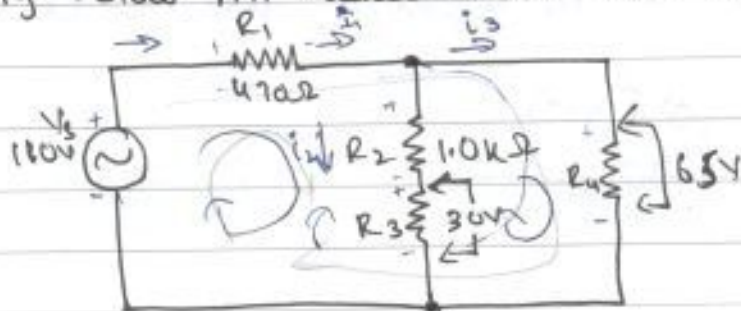 R1 i1 i3
470Ω
Vs +
180V
-
i2 R2 1.0kΩ
R3 30V
R4 65V